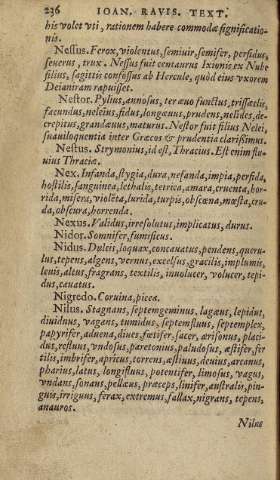 236 IOAN. RAVIS. TEXT.
his volet vti, rationem habere commodæ significatio-
nis.
Nessus. Ferox, violentus, semiuir, semifer, perfidus,
seuerus, trux. Nessus fuit centaurus Ixionis ex Nube
filius, sagittis confossus ab Hercule, quòd eius vxorem
Deianiram rapuisset.
Nestor. Pylius, annosus, ter æuo functus, trisæclis,
facundus, neleius, fidus, longæuus, prudens, nelides, de-
crepitus, grandæuus, maturus. Nestor fuit filius Nelei,
suauiloquentia inter Græcos & prudentia clarissimus.
Nestus. Strymonius, id est, Thracius. Est enim flu-
uius Thraciæ.
Nex. Infanda, stygia, dura, nefanda, impia, perfida,
hostilis, sanguinea, lethalis, tetrica, amara, cruenta, hor-
rida, misera, violēta, lurida, turpis, obscœna, mœsta, cru-
da, obscura, horrenda.
Nexus. Validus, irresolutus, implicatus, durus.
Nidor. Somnifer, fumificus.
Nidus. Dulcis, loquax, concauatus, pendens, queru-
lus, tepens, algens, vernus, excelsus, gracilis, implumis,
leuis, altus, fragrans, textilis, inuolucer, volucer, tepi-
dus, cauatus.
Nigredo. Coruina, picea.
Nilus. Stagnans, septemgeminus, lagæus, lepidus,
diuiduus, vagans, tumidus, septemfluus, septemplex,
papyrifer, aduena, diues, fœtifer, sacer, arisonus, placi-
dus, refluus, vndosus, paretonius, paludosus, æstifer, fer
tilis, imbrifer, apricus, torrens, æstiuus, deuius, arcanus,
pharius, latus, longifluus, potentifer, limosus, vagus,
vndans, sonans, pellæus, præceps, linifer, australis, pin-
guis, irriguus, ferax, extremus, fallax, nigrans, tepens,
anauros.
Nilus